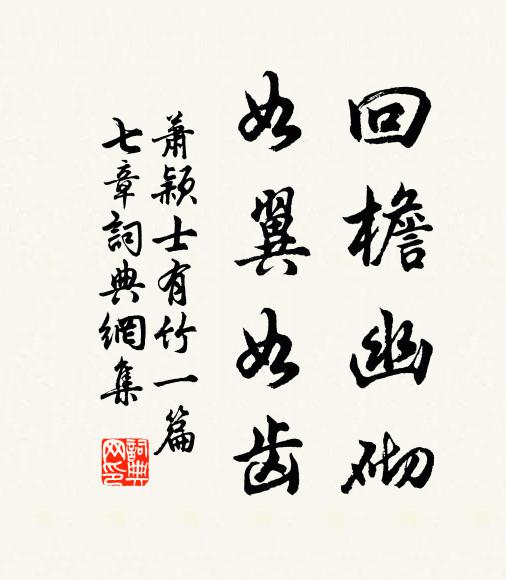 回檐幽砌
如翼如齿
萧颖士有竹一篇
七章詞典網集
詞典网印